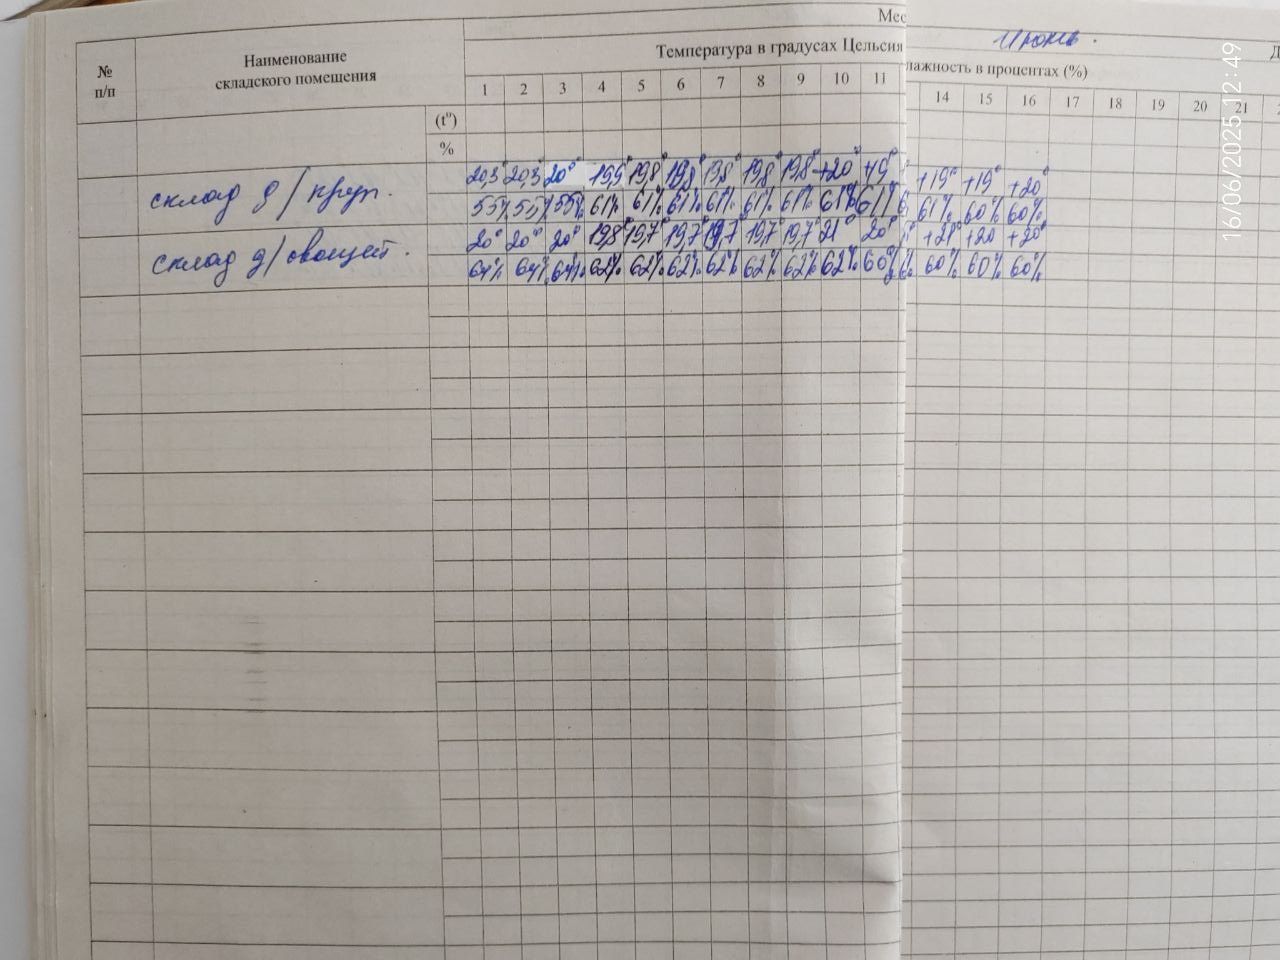 Мес
Июнь.
№ п/п
Наименование складского помещения
Температура в градусах Цельсия
лажность в процентах (%)
Д
1 2 3 4 5 6 7 8 9 10 11 14 15 16 17 18 19 20 21
(t°)
%
склад д/круп. 20,3° 20,3° 20° 19,9° 19,8° 19,8° 19,8° 19,8° 19,8° +20° +19° +19° +19° +20°
55% 55% 55% 61% 61% 61% 61% 61% 61% 61% 61% 61% 60% 60%
склад д/овощей. 20° 20° 20° 19,8° 19,7° 19,7° 19,7° 19,7° 19,7° 21° 20° +21° +20 +20°
64% 64% 64% 62% 62% 62% 62% 62% 62% 62% 60% 60% 60% 60%
16/06/2025 12:49